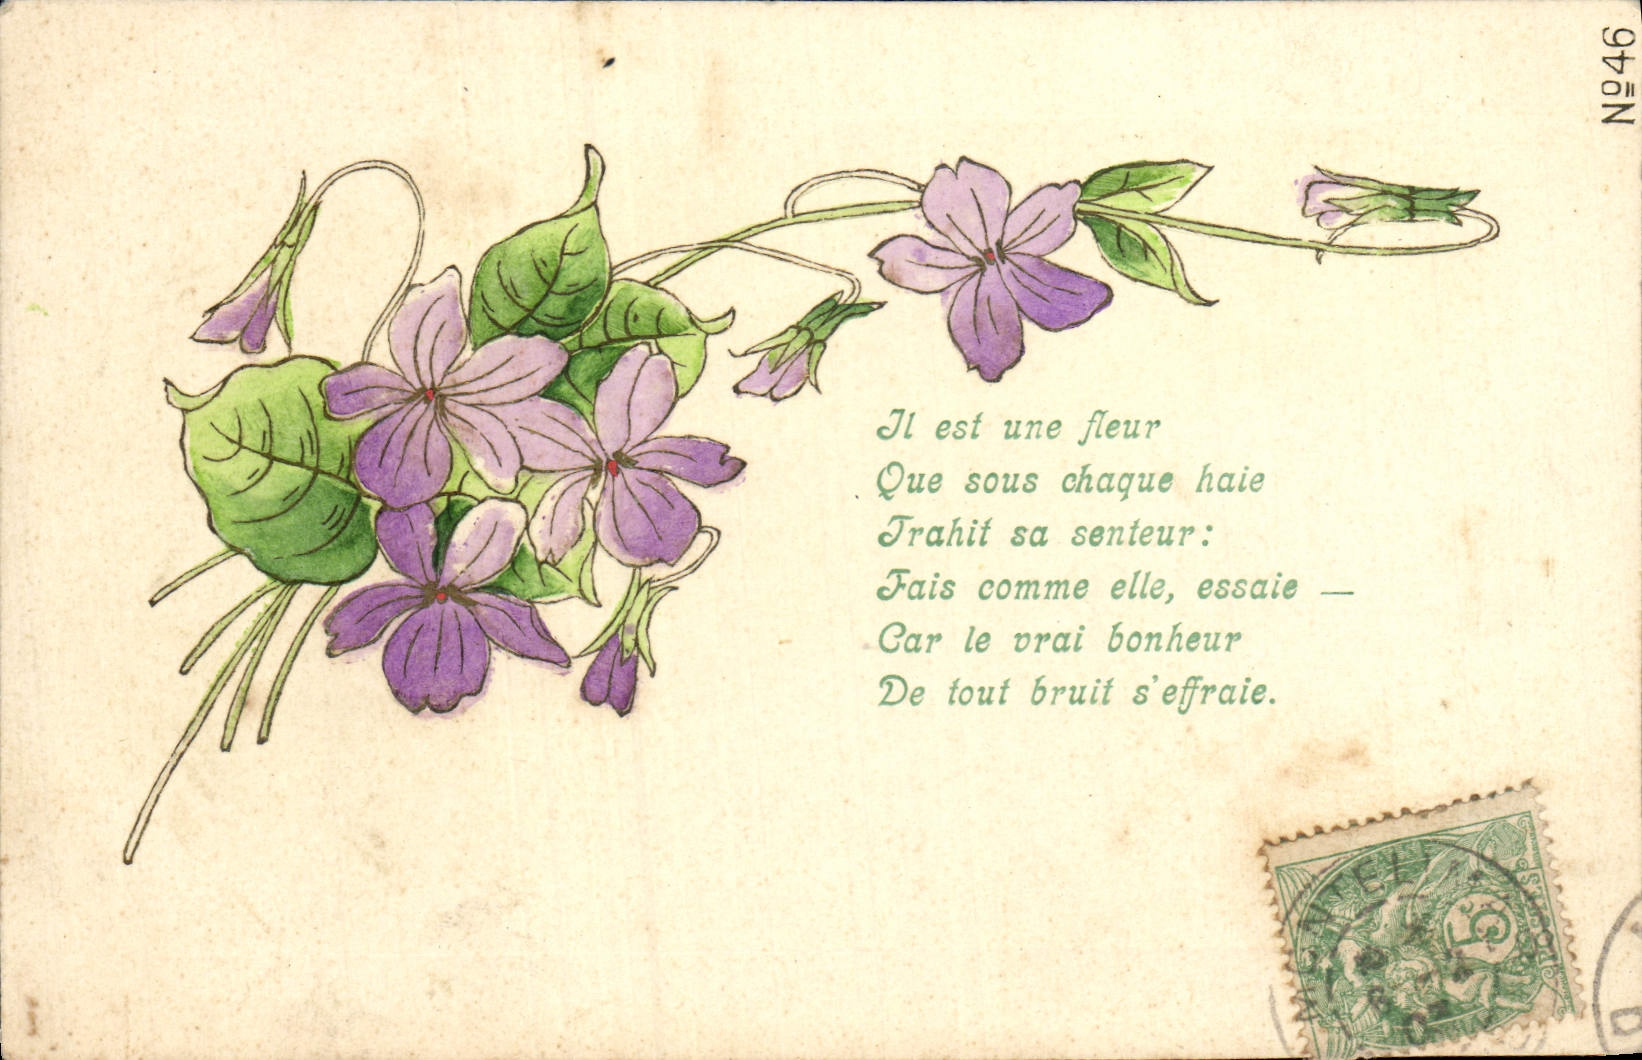 Nº 46
Il est une fleur
Que sous chaque haie
Trahit sa senteur:
Fais comme elle, essaie —
Car le vrai bonheur
De tout bruit s'effraie.
5